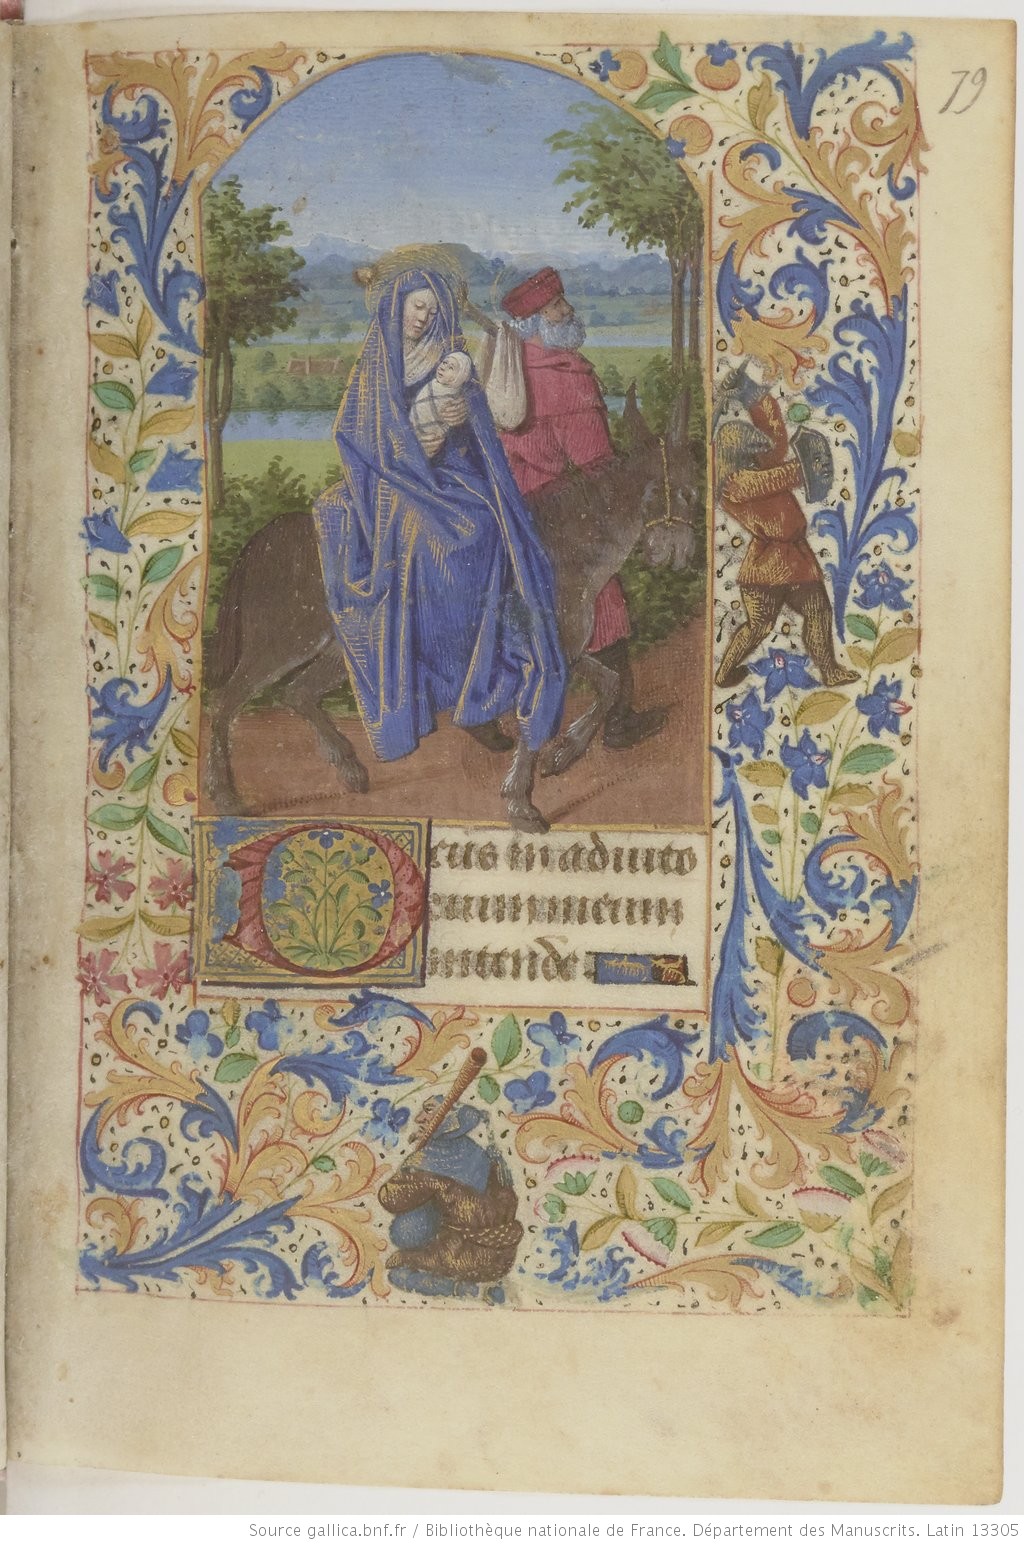 79
Deus in adiuto
rium meum
intende
Source gallica.bnf.fr / Bibliothèque nationale de France. Département des Manuscrits. Latin 13305